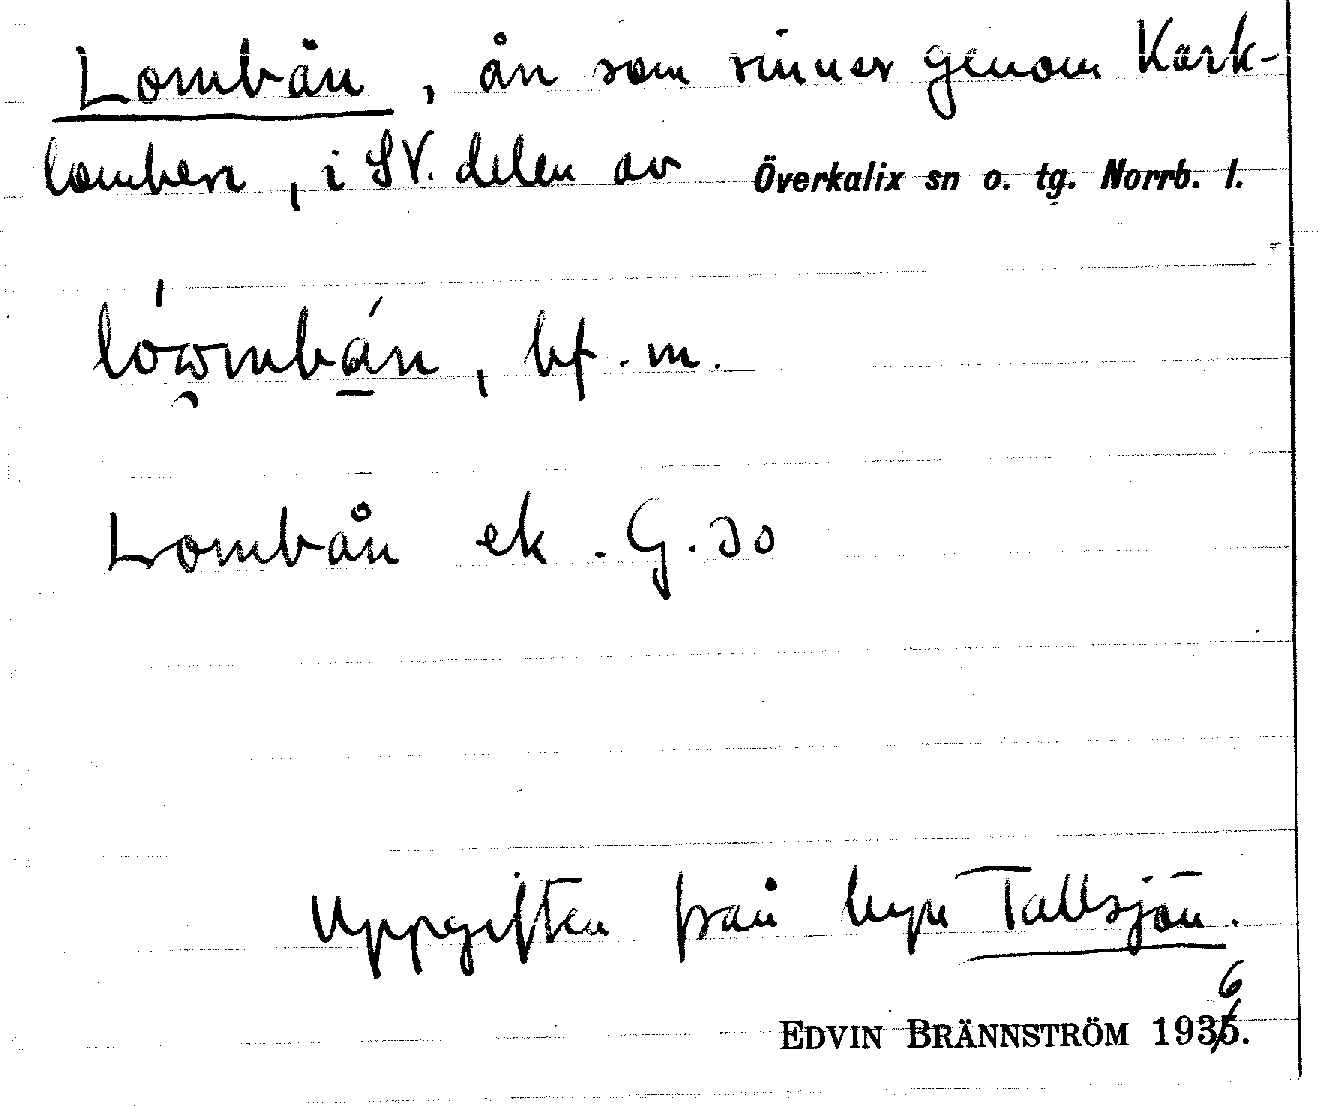 Lombån, ån som rinner genom Kark-
lomben, i SV. delen av Överkalix sn o. tg. Norrb. l.
bf. m.
Lombån ek. G. 30
Uppgiften från byn Tallsjön.
6
EDVIN BRÄNNSTRÖM 1935.